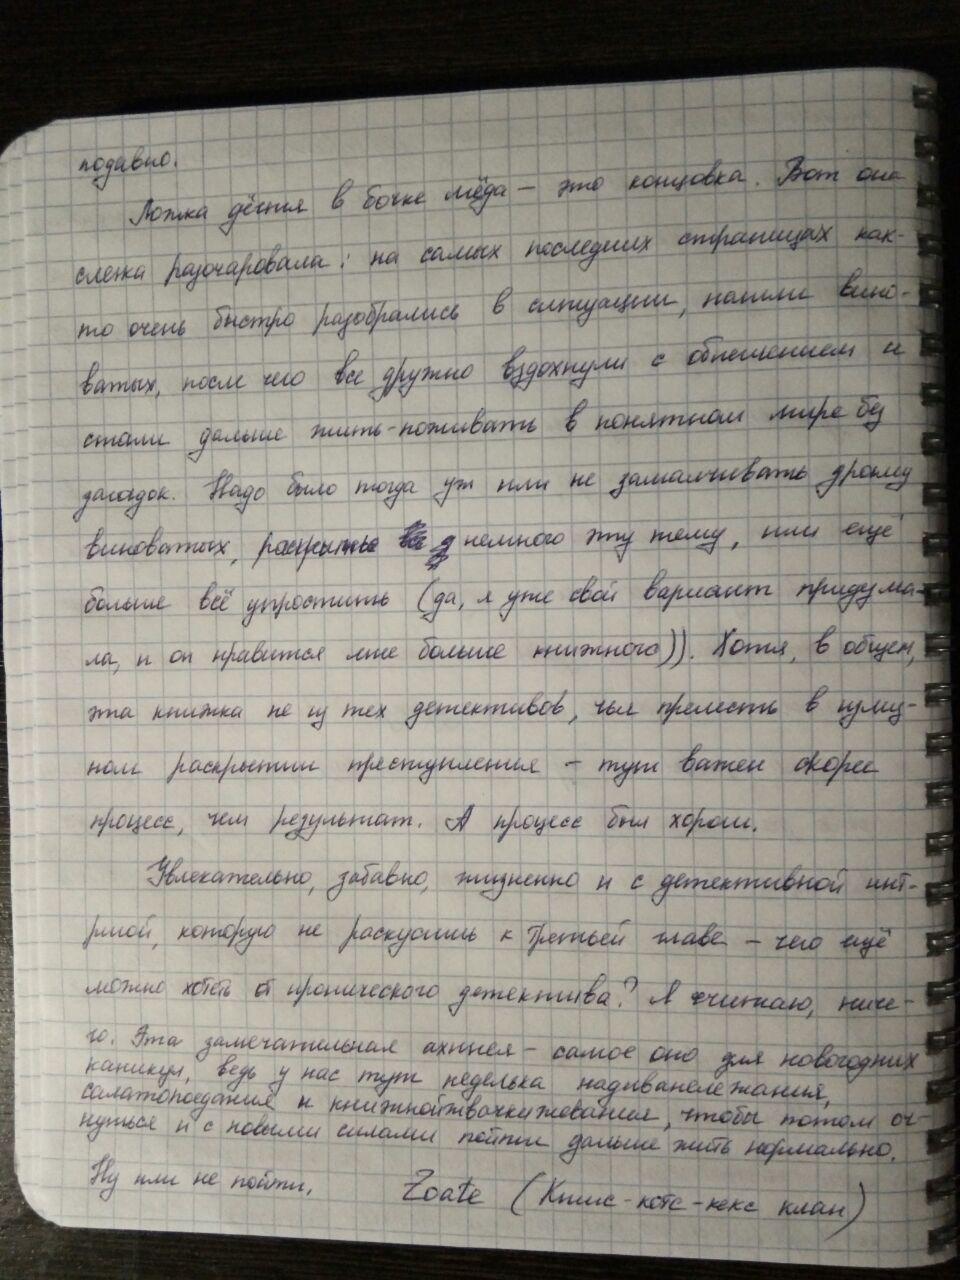 подавно.
Ложка дёгтя в бочке мёда – это концовка. Вот она
слегка разочаровала: на самых последних страницах как-
то очень быстро разобрались в ситуации, нашли вино-
ватых, после чего все дружно вздохнули с облегчением и
стали дальше жить-поживать в понятном мире без
загадок. Надо было тогда уж или не замалчивать драму
виноватых, раскрытье немного эту тему, или ещё
больше всё упростить (да, я уже свой вариант придума-
ла, и он нравится мне больше книжного)). Хотя, в общем,
эта книжка не из тех детективов, чья прелесть в изящ-
ном раскрытии преступления – тут важен скорее
процесс, чем результат. А процесс был хорош.
Увлекательно, забавно, жизненно и с детективной инт-
ригой, которую не раскусишь к третьей главе – чего ещё
можно хотеть от иронического детектива? Я считаю, ниче-
го. Эта замечательная ахинея – самое оно для новогодних
каникул, ведь у нас тут неделька надиванележания,
салатопоедания и книжнойжвачкижевания, чтобы потом оч-
нуться и с новыми силами пойти дальше жить нормально.
Ну или не пойти. Zoate (Кшис-котс-кекс клан)